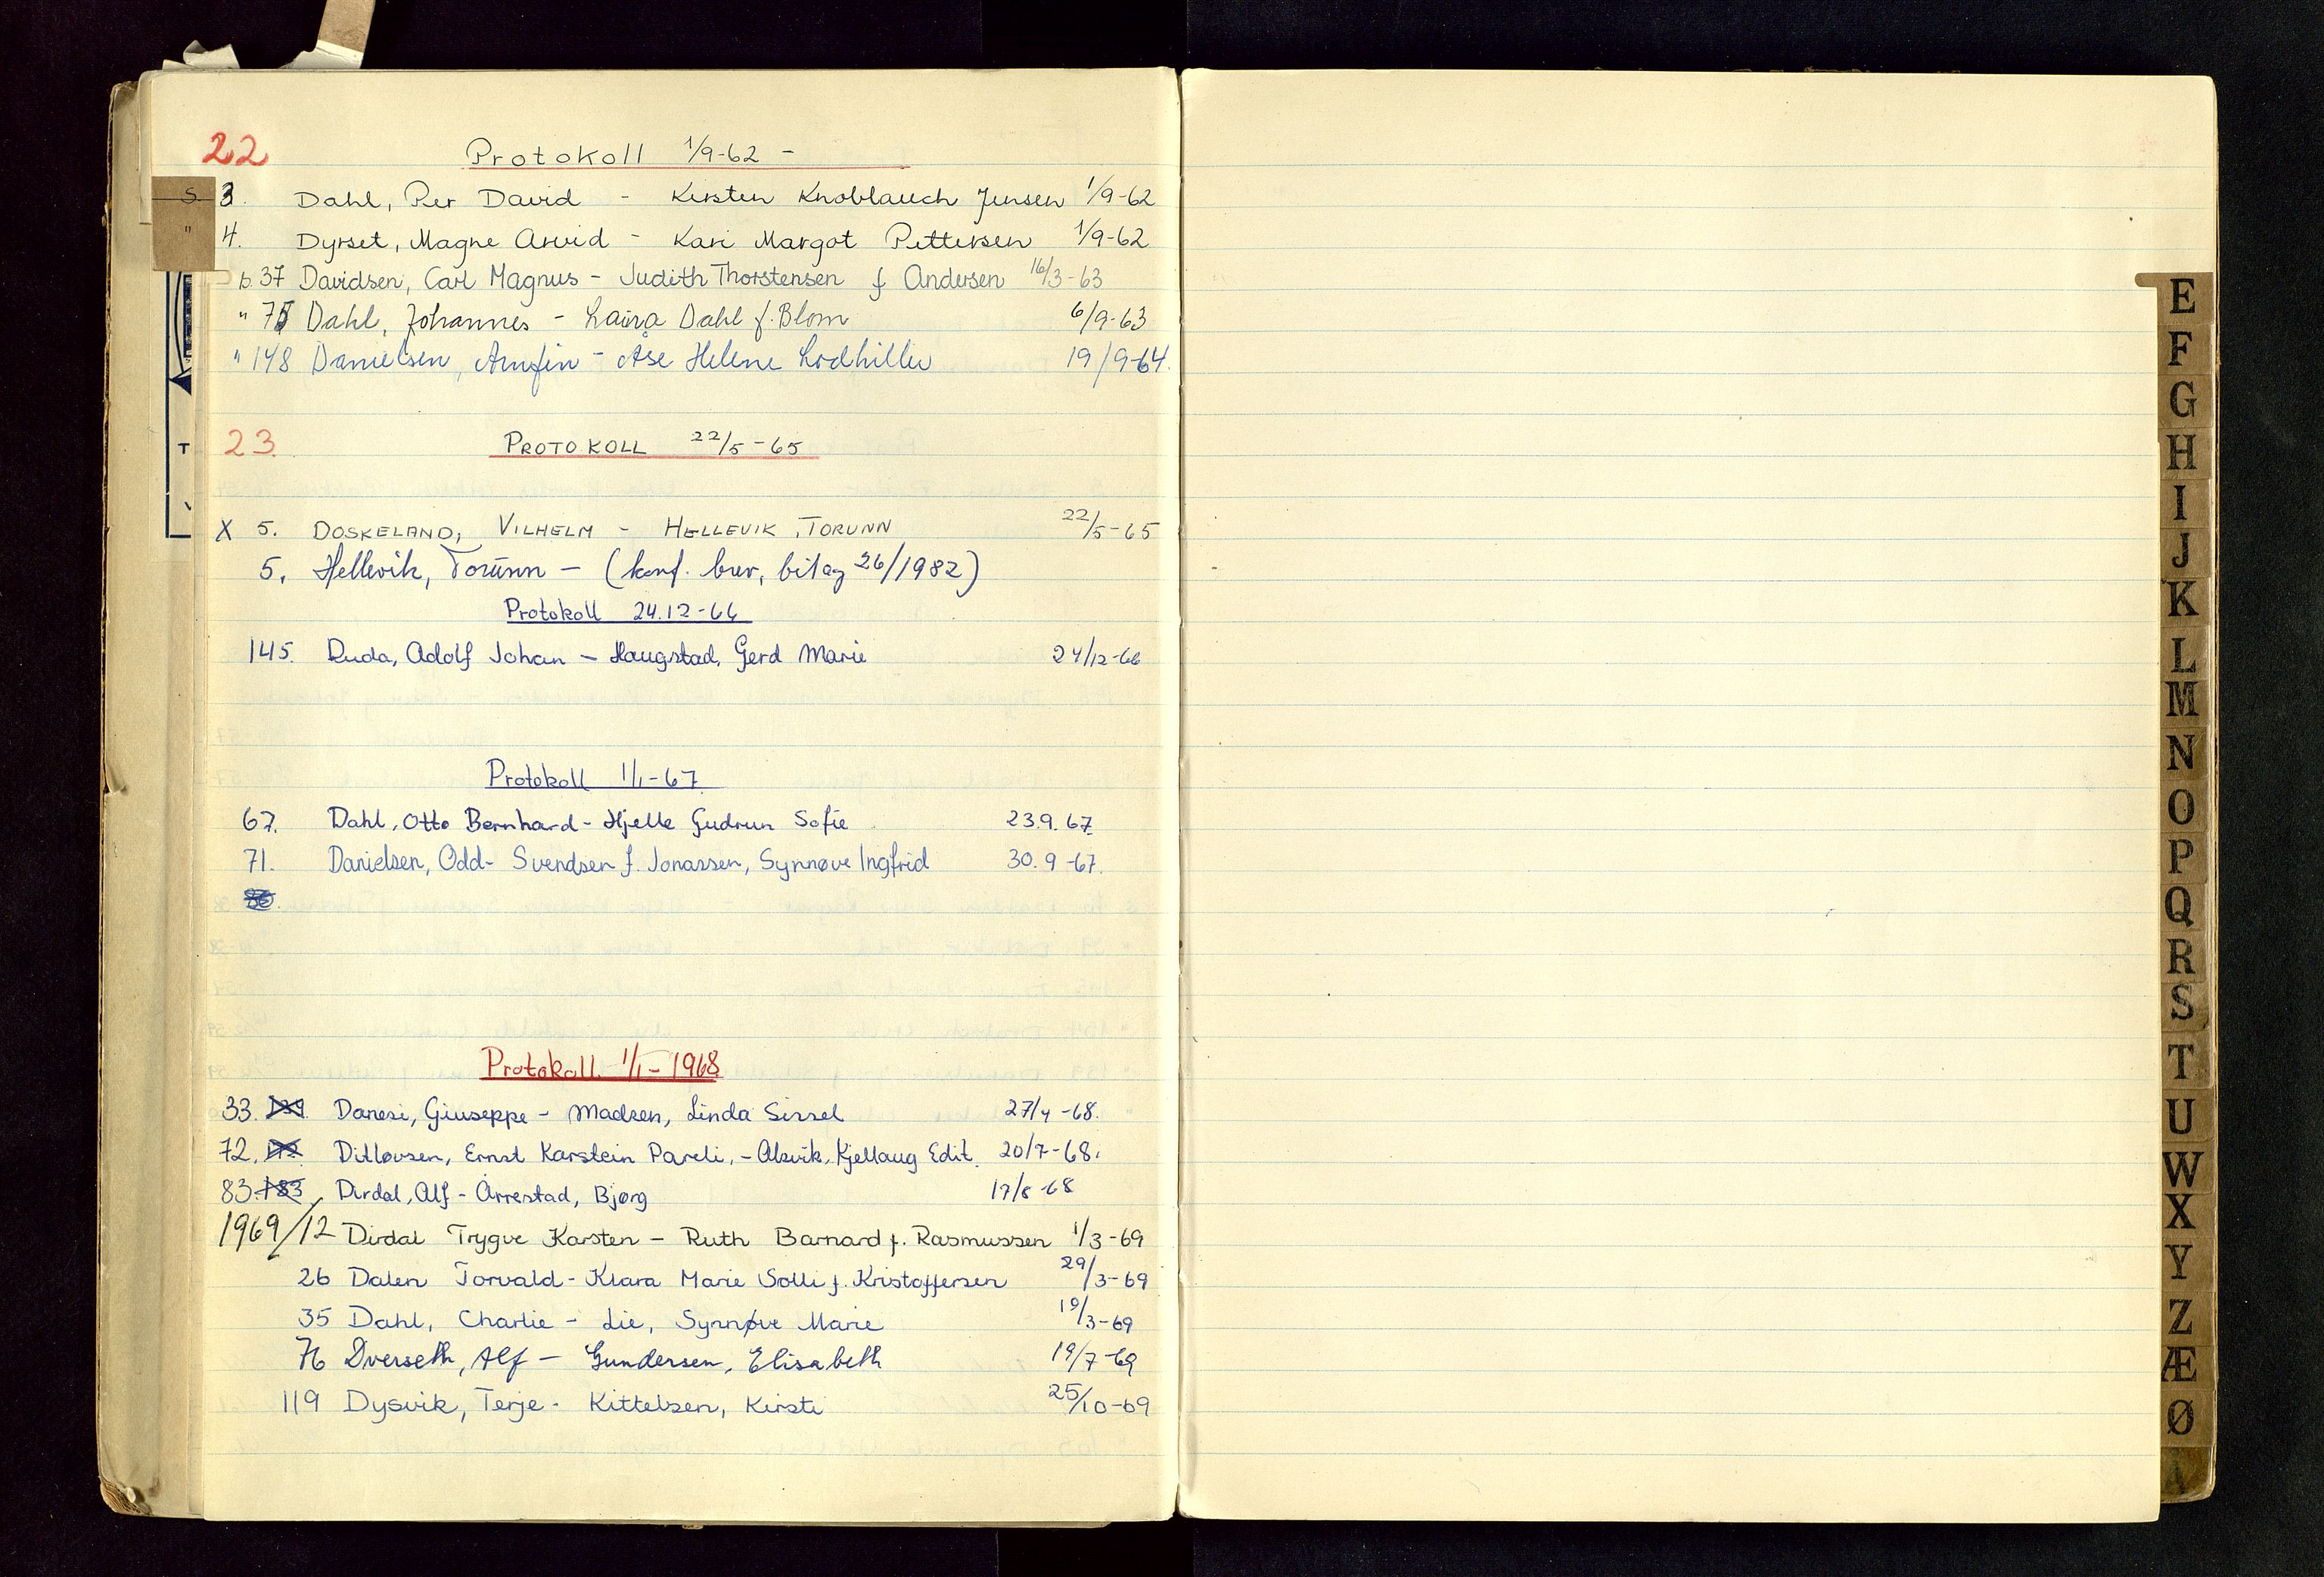 22 Protokoll 1/9-62 -
S. 3. Dahl, Per David - Kirsten Knoblauch Jensen 1/9-62
" 4. Dyrset, Magne Arvid - Kari Margot Pettersen 1/9-62
b. 37 Davidsen, Carl Magnus - Judith Thorstensen f Andersen 16/3-63
" 75 Dahl, Johannes - Laura Dahl f. Blom 6/9-63
" 148 Danielsen, Arnfin - Åse Helene 19/9-64.
23. PROTOKOLL 22/5-65
T
X 5. DOSKELAND, VILHELM - HELLEVIK, TORUNN 22/5-65
5. Hellevik, Torunn - (konf. brev, bilag 26/1982)
Protokoll 24.12-66
145. Duda, Adolf Johan - Haugstad, Gerd Marie 24/12-66
Protokoll 1/1-67.
67. Dahl, Otto Bernhard - Hjelle Gudrun Sofie 23.9.67.
71. Danielsen, Odd - Svendsen f. Jonassen, Synnøve Ingfrid 30.9-67.
Protokoll 1/1-1968
33. Danesi, Giuseppe - Madsen, Linda Sissel 27/4-68.
72. Ditløvsen, Ernst Karstein Pareli, - Alsvik, Kjellaug Edit. 20/7-68.
83. 183 Dirdal, Alf - Årrestad, Bjørg 17/8-68
1969/12 Dirdal Trygve Karsten - Ruth Barnard f. Rasmussen 1/3-69
26 Dalen Torvald - Klara Marie Solli f. Kristoffersen 29/3-69
35 Dahl, Charlie - Lie, Synnøve Marie 19/3-69
76 Dverseth, Alf - Gundersen, Elisabeth 19/7-69
119 Dysvik, Terje - Kittelsen, Kirsti 25/10-69
E
F
G
H
I
J
K
L
M
N
O
P
Q
R
S
T
U
W
X
Y
Z
Æ
Ø